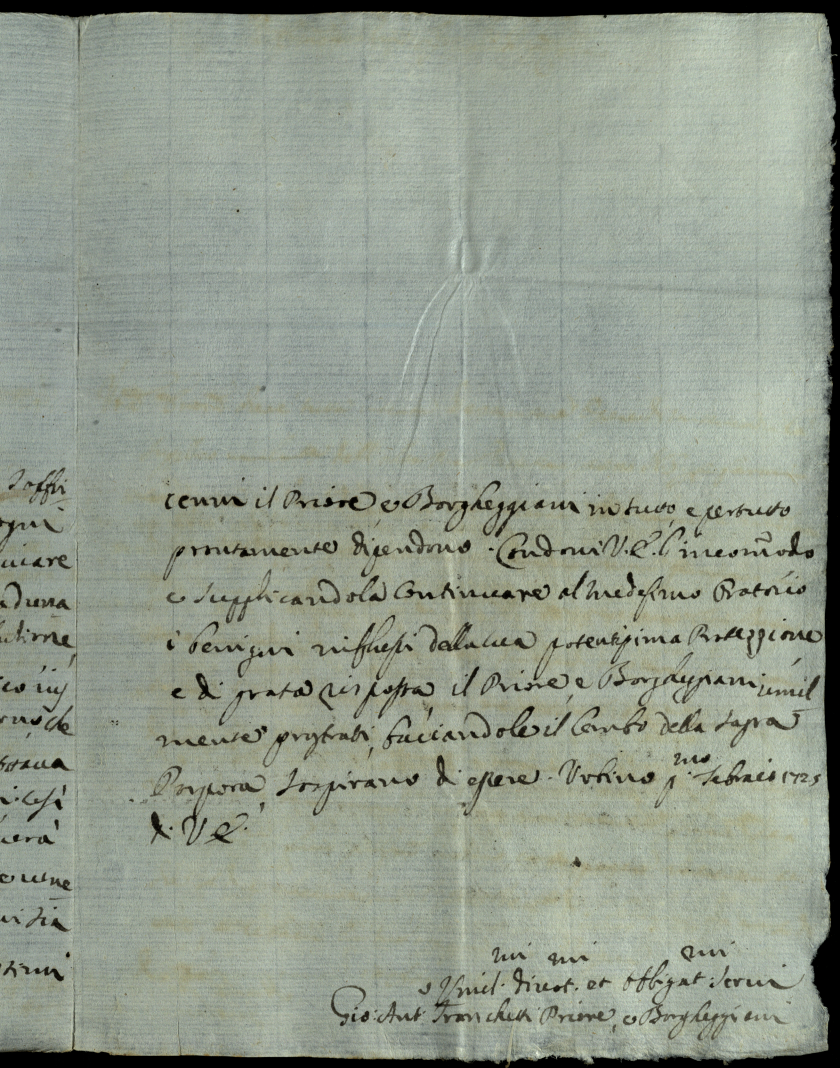 soffri
ogni
uicare
cenni il Priore, e Borgheggiani in tutto, e pertutto
prontamente dipendono. Condoni V.E. l'incom̃odo
e supplicandola Continuare al medesimo Oratorio
i benigni riflessi della sua potentissima Protezzione
e di grata risposta il Priore, e Borgheggiani umil
mente prostrati, baciandole il lembo della Sagra
Porpora, sospirano di essere. Urbino p.mo Febraio 1725
di V.E.
Umil.mi divot.mi et obligat.mi Servi
Gio: Ant. Franchetti Priore, e Borgheggiani